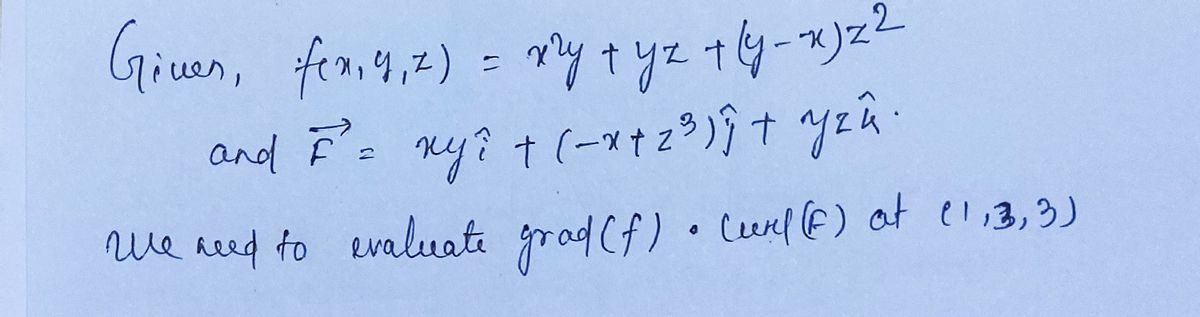 Given, f(x,y,z) = x²y + yz + (y-x)z²
and F⃗ = xyî + (-x+z³)ĵ + yzk̂.
We need to evaluate grad(f) • Curl(F) at (1,3,3)